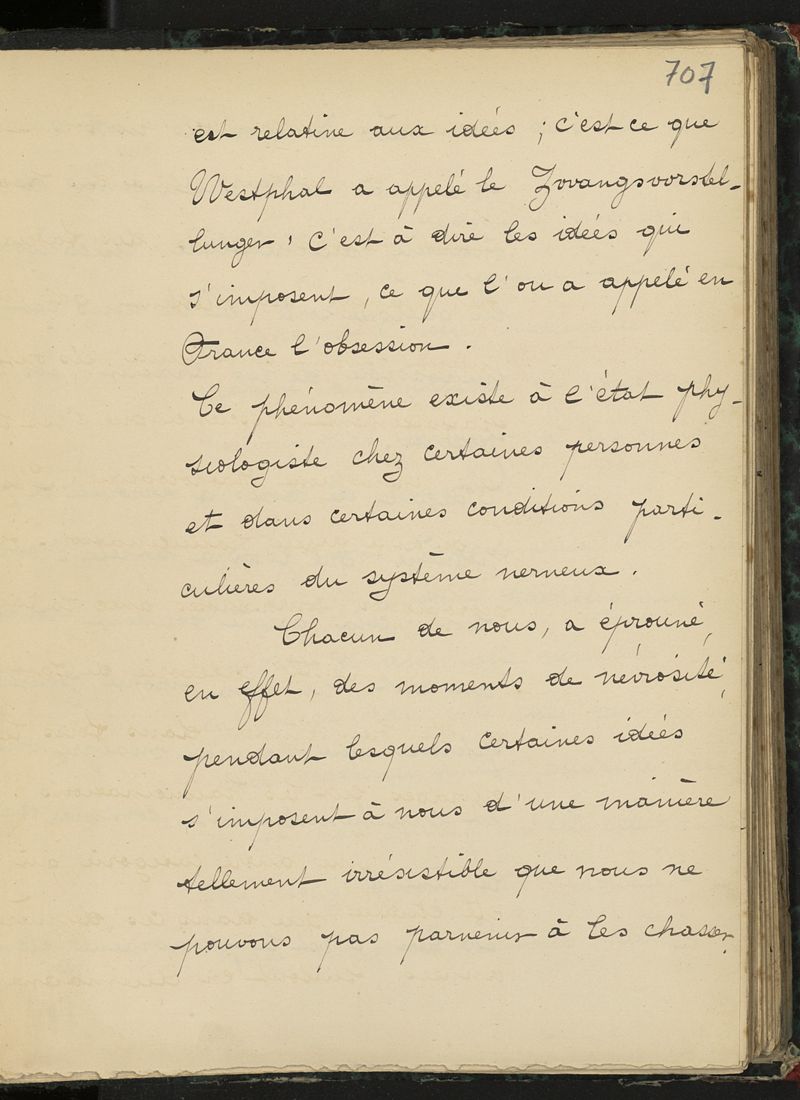 707
est relative aux idées ; c'est ce que
Westphal a appelé le Zwangsvorstel-
lunger, c'est à dire les idées qui
s'imposent, ce que l'on a appelé en
France l'obsession.
Ce phénomène existe à l'état phy-
siologiste chez certaines personnes
et dans certaines conditions parti-
culières du système nerveux.
Chacun de nous, a éprouvé,
en effet, des moments de névrosité,
pendant lesquels certaines idées
s'imposent à nous d'une manière
tellement irrésistible que nous ne
pouvons pas parvenir à les chasser.